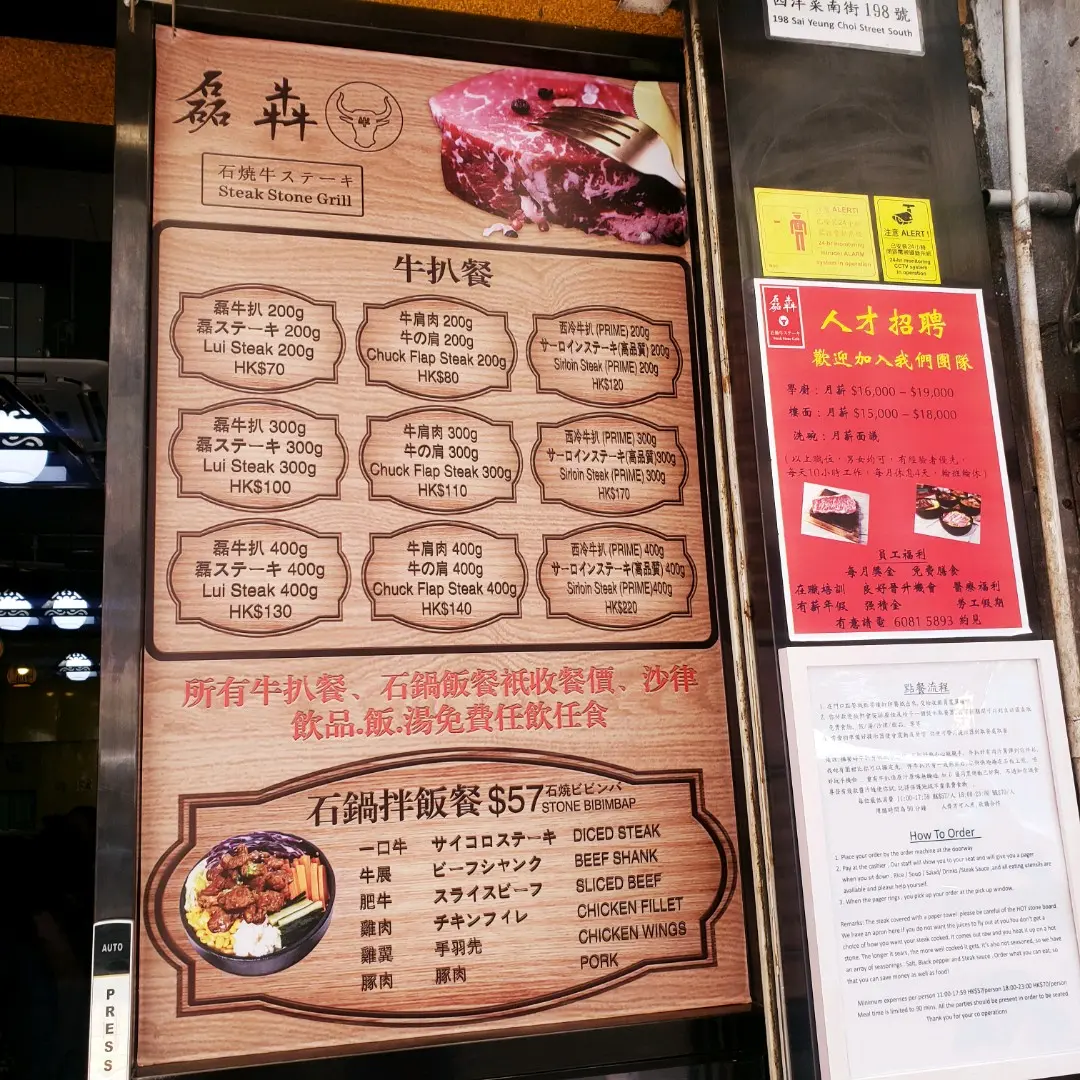 西洋菜南街 198 號
198 Sai Yeung Choi Street South
磊 犇
石燒牛ステーキ
Steak Stone Grill
牛扒餐
磊牛扒 200g
磊ステーキ 200g
Lui Steak 200g
HK$70
牛肩肉 200g
牛の肩 200g
Chuck Flap Steak 200g
HK$80
西冷牛扒 (PRIME) 200g
サーロインステーキ(高品質) 200g
Sirloin Steak (PRIME) 200g
HK$120
磊牛扒 300g
磊ステーキ 300g
Lui Steak 300g
HK$100
牛肩肉 300g
牛の肩 300g
Chuck Flap Steak 300g
HK$110
西冷牛扒 (PRIME) 300g
サーロインステーキ(高品質)300g
Sirloin Steak (PRIME) 300g
HK$170
磊牛扒 400g
磊ステーキ 400g
Lui Steak 400g
HK$130
牛肩肉 400g
牛の肩 400g
Chuck Flap Steak 400g
HK$140
西冷牛扒 (PRIME) 400g
サーロインステーキ(高品質) 400g
Sirloin Steak (PRIME)400g
HK$220
所有牛扒餐、石鍋飯餐衹收餐價、沙律
飲品.飯.湯免費任飲任食
石鍋拌飯餐 $57
石焼ビビンバ
STONE BIBIMBAP
一口牛 サイコロステーキ DICED STEAK
牛展 ビーフシャンク BEEF SHANK
肥牛 スライスビーフ SLICED BEEF
雞肉 チキンフィレ CHICKEN FILLET
雞翼 手羽先 CHICKEN WINGS
豚肉 豚肉 PORK
AUTO
PRESS
注意 ALERT!
24-hr monitoring
ALARM
system in operation
注意 ALERT!
24-hr monitoring
CCTV system
in operation
磊犇
石燒牛ステーキ
Steak Stone Grill
人才招聘
歡迎加入我們團隊
學廚：月薪 $16,000 – $19,000
樓面：月薪 $15,000 – $18,000
洗碗：月薪面議
(以上職位，男女均可，有經驗者優先，
每天10小時工作，每月休息4天，輪班輪休)
員工福利
每月獎金 免費膳食
在職培訓 良好晉升機會 醫療福利
有薪年假 強積金 勞工假期
有意請電 6081 5893 約見
點餐流程
How To Order
1. Place your order by the order machine at the doorway
2. Pay at the cashier . Our staff will show you to your seat and will give you a pager
when you sit down . Rice / Soup / Salad/ Drinks /Steak Sauce ,and all eating utensils are
available and please help yourself.
3. When the pager rings , you pick up your order at the pick up window.
Remarks: The steak covered with a paper towel, please be careful of the HOT stone board.
We have an apron here if you do not want the juices to fly out at you.You don't get a
choice of how you want your steak cooked. It comes out raw and you heat it up on a hot
stone. The longer it sears, the more well cooked it gets. It's also not seasoned, so we have
an array of seasonings . Salt, Black pepper and Steak sauce . Order what you can eat, so
that you can save money as well as food!
Minimum expernses per person 11:00-17:59 HK$57/person 18:00-23:00 HK$70/person
Meal time is limited to 90 mins. All the parties should be present in order to be seated.
Thank you for your co operations